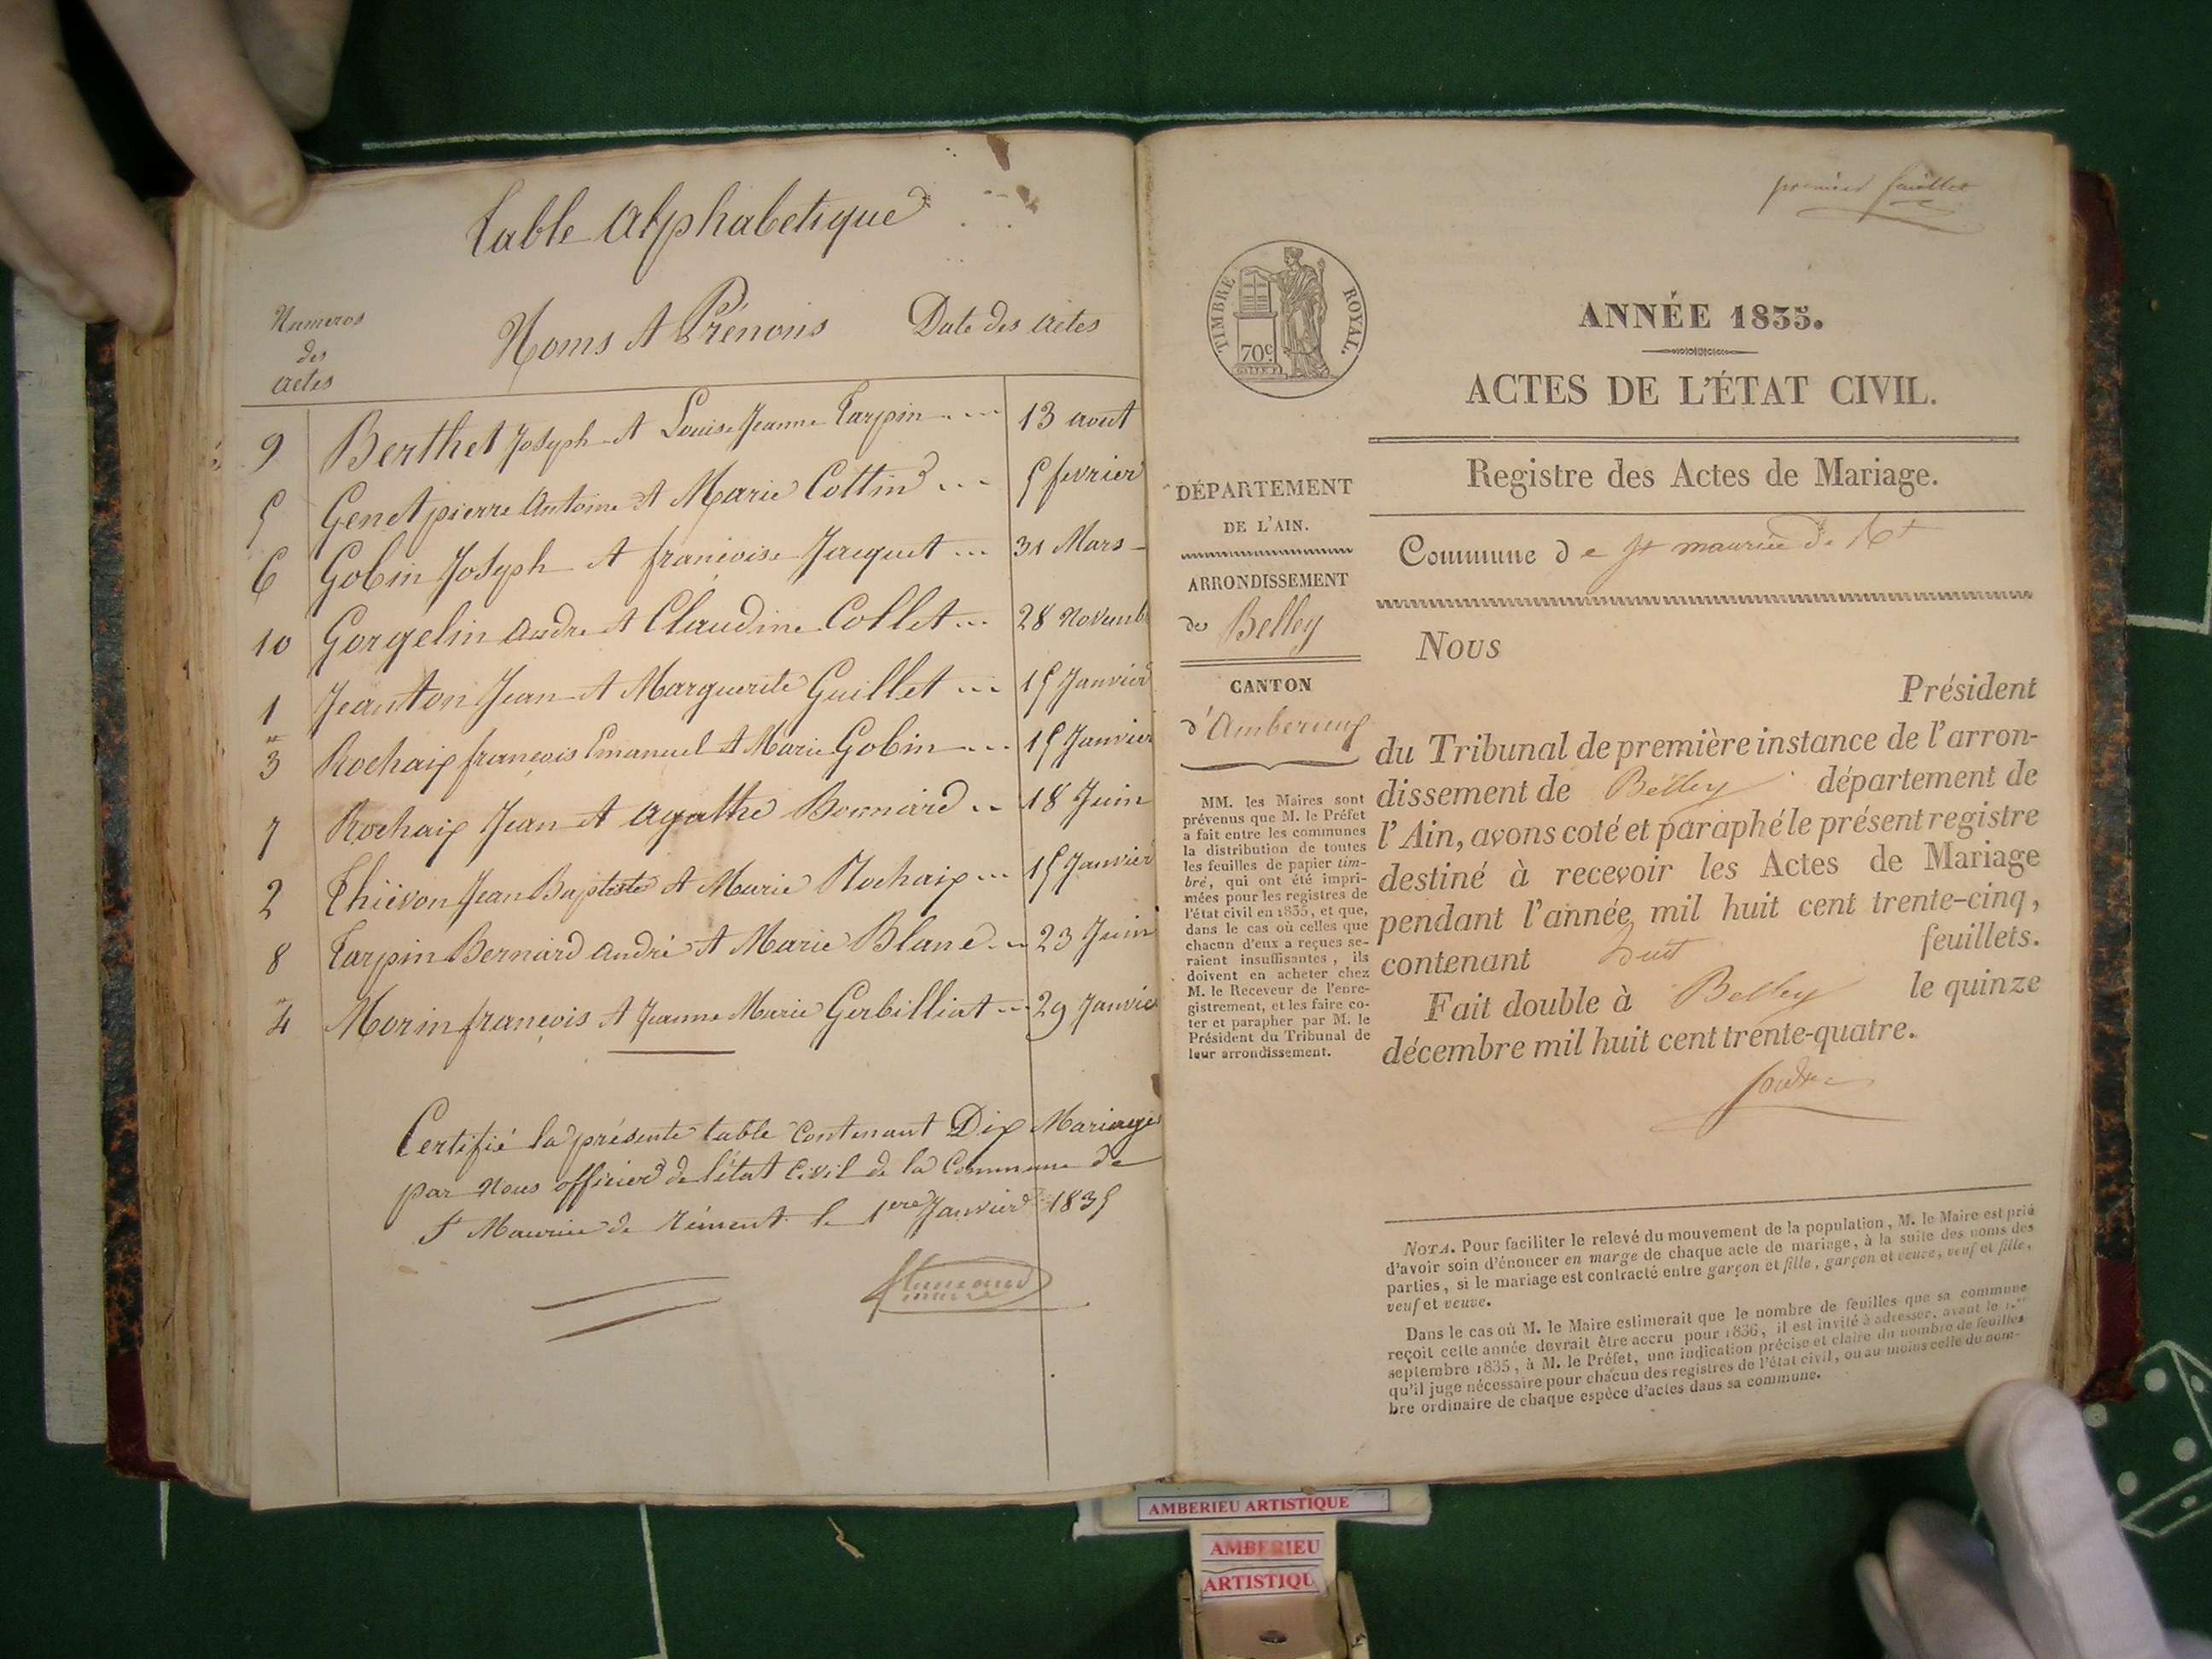 Table Alphabetique
Numeros
des
actes
Noms et Prénoms
Date des actes
9 Berthet Joseph et Louise Jeanne Tarpin ... 13 aout
5 Genet pierre Antoine et Marie Cottin ... 5 fevrier
6 Gobin Joseph et francoise Jacquet ... 31 Mars
10 Gorgelin andre et Claudine Collet ... 28 Novemb
1 Jeanton Jean et Marguerite Guillet ... 15 Janvier
3 Rochaix françois Emanuel et Marie Gobin ... 15 Janvier
7 Rochaix Jean et agathe Bonnard .. 18 Juin
2 Thiévon Jean Baptiste et Marie Rochaix ... 15 Janvier
8 Tarpin Bernard andré et Marie Blanc ... 23 Juin
4 Morin françois et Jeanne Marie Gerbilliat ... 29 Janvie
Certifié la présente table Contenant Dix Mariages
par Nous officier de l'état Civil de la Commune de
St Maurice de rément le 1ere Janvier 1835
premier feuillet
TIMBRE ROYAL.
70c
ANNÉE 1835.
ACTES DE L'ÉTAT CIVIL.
Registre des Actes de Mariage.
DÉPARTEMENT
DE L'AIN.
ARRONDISSEMENT
de Belley
CANTON
d'Amberieux
MM. les Maires sont
prévenus que M. le Préfet
a fait entre les communes
la distribution de toutes
les feuilles de papier tim-
bré, qui ont été impri-
mées pour les registres de
l'état civil en 1835, et que,
dans le cas où celles que
chacun d'eux a reçues se-
raient insuffisantes, ils
doivent en acheter chez
M. le Receveur de l'enre-
gistrement, et les faire co-
ter et parapher par M. le
Président du Tribunal de
leur arrondissement.
Commune de St maurice de Rt
Nous
Président
du Tribunal de première instance de l'arron-
dissement de Belley département de
l'Ain, avons coté et paraphé le présent registre
destiné à recevoir les Actes de Mariage
pendant l'année mil huit cent trente-cinq,
contenant huit feuillets.
Fait double à Belley le quinze
décembre mil huit cent trente-quatre.
NOTA. Pour faciliter le relevé du mouvement de la population, M. le Maire est prié
d'avoir soin d'énoncer en marge de chaque acte de mariage, à la suite des noms des
parties, si le mariage est contracté entre garçon et fille, garçon et veuve, veuf et fille,
veuf et veuve.
Dans le cas où M. le Maire estimerait que le nombre de feuilles que sa commune
reçoit cette année devrait être accru pour 1836, il est invité à adresser, avant le 1.er
septembre 1835, à M. le Préfet, une indication précise et claire du nombre de feuilles
qu'il juge nécessaire pour chacun des registres de l'état civil, ou au moins celle du nom-
bre ordinaire de chaque espèce d'actes dans sa commune.
AMBERIEU ARTISTIQUE
AMBERIEU
ARTISTIQU